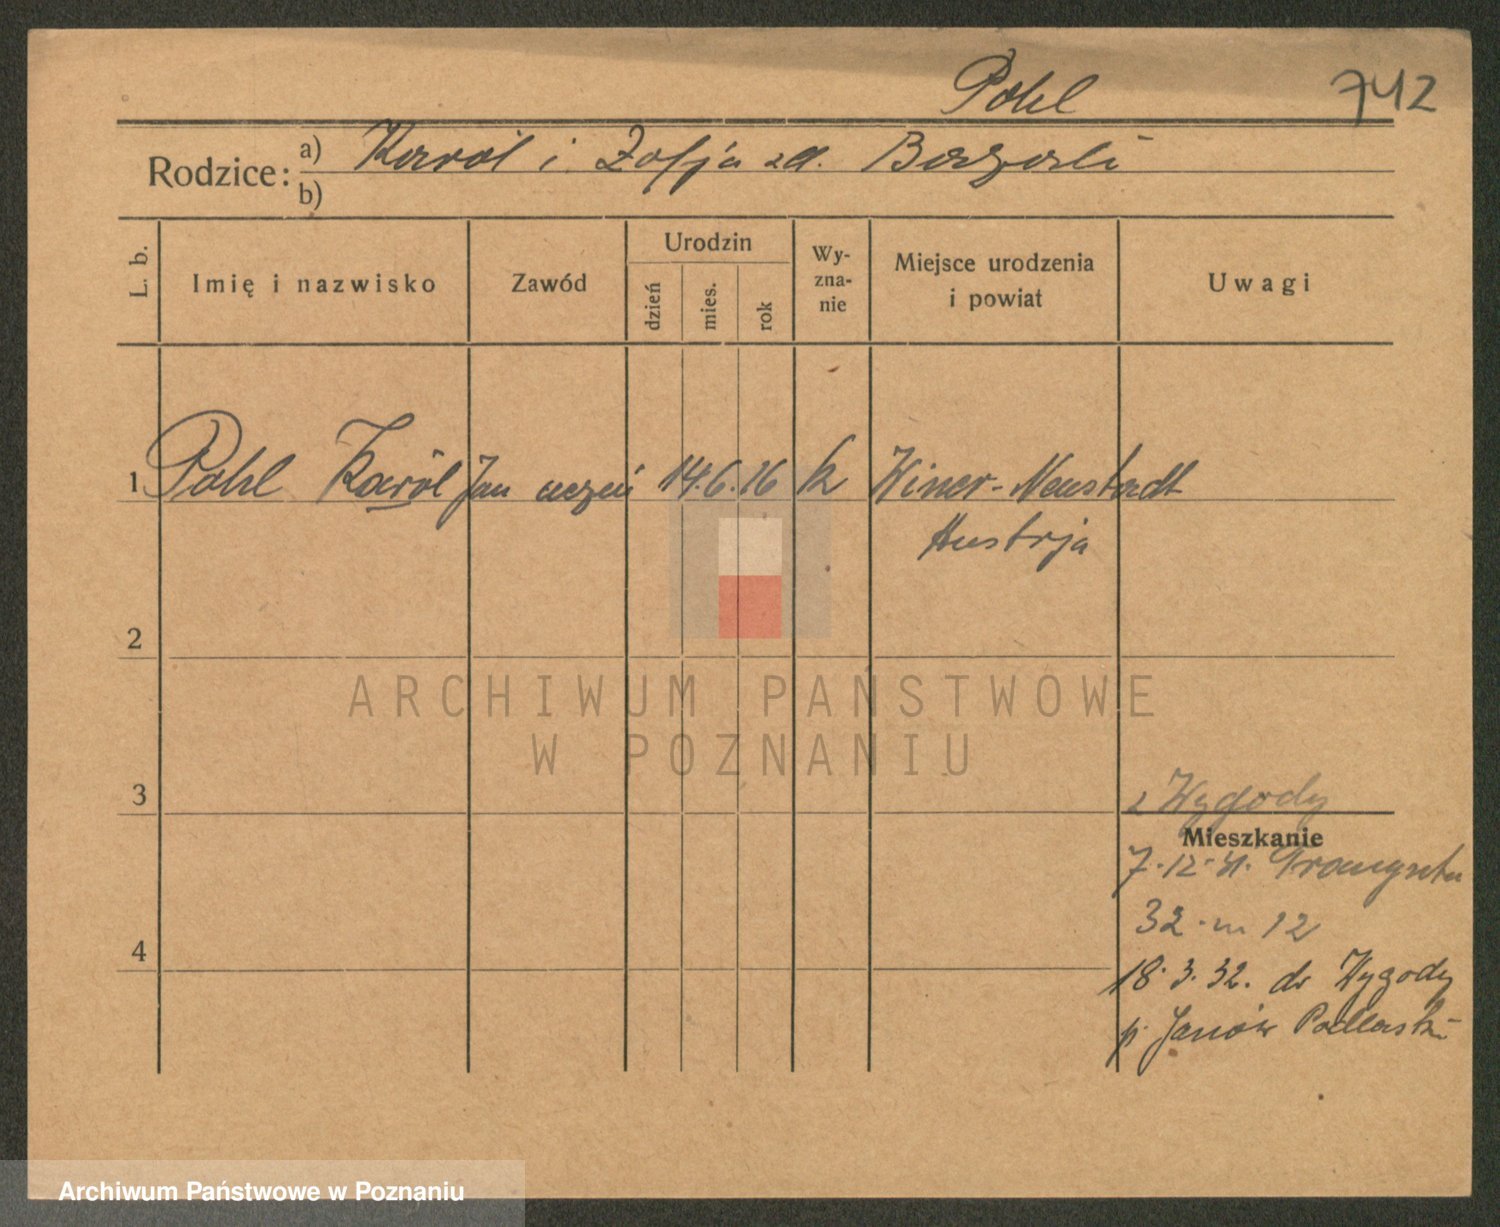 Pohl 742
Rodzice: a) Karol i Zofja zd.
b)
L. b.
Imię i nazwisko
Zawód
Urodzin
dzień
mies.
rok
Wy-
zna-
nie
Miejsce urodzenia
i powiat
Uwagi
1 Pohl Karól Jan uczeń 14. 6. 16 k Winer-Neustadt
Austrja
2
ARCHIWUM PAŃSTWOWE
W POZNANIU
3
z Wygody
Mieszkanie
7.12.31.
32 m 12
4
18.3.32. do Wygody
p. Janów Podlaski
Archiwum Państwowe w Poznaniu